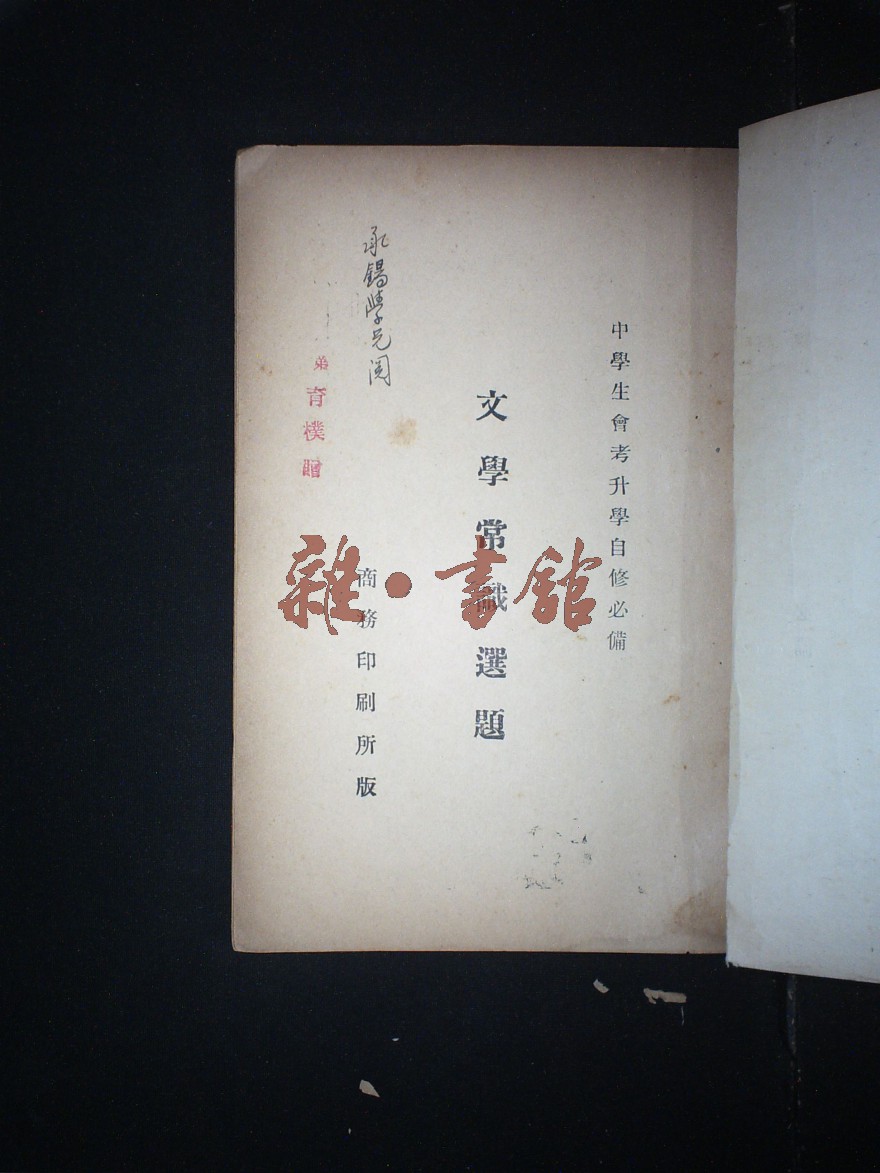 中學生會考升學自修必備
文學常識選題
承錫學兄閱
商務印刷所版
弟育樸贈
雜·書館